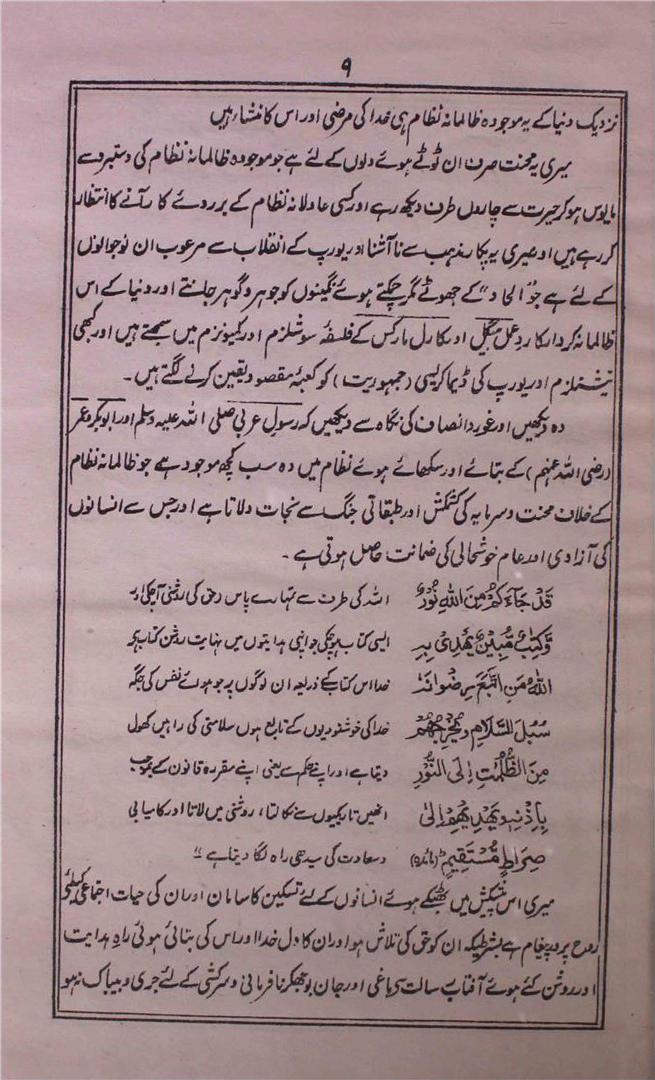 ۹
نزدیک دنیا کے یہ موجودہ ظالمانہ نظام ہی خدا کی مرضی اور اس کا منشار ہیں
میری یہ محنت صرف ان ٹوٹے ہوئے دلوں کے لئے ہے جو موجودہ ظالمانہ نظام کی دستبرد سے
مایوس ہو کر حیرت سے چاروں طرف دیکھ رہے اور کسی عادلانہ نظام کے بروئے کار آنے کا انتظار
کر رہے ہیں اور میری یہ پکار مذہب سے ناآشنا اور یورپ کے انقلاب سے مرعوب ان نوجوانوں
کے لئے ہے جو "الحاد" کے جھوٹے مگر چمکتے ہوئے نگینوں کو جوہر و گوہر جانتے اور دنیا کے اس
ظالمانہ کردار کا ردِ عمل ہیگل اور کارل مارکس کے فلسفۂ سوشلزم اور کمیونزم میں سمجھتے ہیں اور کبھی
نیشنلزم اور یورپ کی ڈیماکریسی (جمہوریت) کو کعبۂ مقصود یقین کرنے لگتے ہیں۔
وہ دیکھیں اور غور و انصاف کی نگاہ سے دیکھیں کہ رسولِ عربی صلی اللہ علیہ وسلم اور ابوبکر و عمر
(رضی اللہ عنہم) کے بتائے اور سکھائے ہوئے نظام میں وہ سب کچھ موجود ہے جو ظالمانہ نظام
کے خلاف محنت و سرمایہ کی کشمکش اور طبقاتی جنگ سے نجات دلاتا ہے اور جس سے انسانوں
کی آزادی اور عام خوشحالی کی ضمانت حاصل ہوتی ہے۔
قَدْ جَاءَكُمْ مِنَ اللهِ نُورٌ اللہ کی طرف سے تمہارے پاس (حق کی) روشنی آچکی اور
وَّكِتٰبٌ مُّبِيْنٌ يَهْدِىْ بِهِ ایسی کتاب پہونچکی جو اپنی ہدایتوں میں نہایت روشن کتاب ہے
اللهُ مَنِ اتَّبَعَ رِضْوَانَهٗ خدا اس کتاب کے ذریعہ ان لوگوں پر جو ہوائے نفس کی جگہ
سُبُلَ السَّلَامِ وَيُخْرِجُهُمْ خدا کی خوشنودیوں کے تابع ہوں سلامتی کی راہیں کھول
مِنَ الظُّلُمٰتِ اِلَى النُّوْرِ دیتا ہے اور اپنے حکم سے یعنی اپنے مقررہ قانون کے بموجب
بِاِذْنِهٖ وَيَهْدِيْهِمْ اِلٰى انھیں تاریکیوں سے نکالتا، روشنی میں لاتا اور کامیابی
صِرَاطٍ مُّسْتَقِيْمٍ (مائدہ) و سعادت کی سیدھی راہ لگا دیتا ہے"
میری اس پیشکش میں بھٹکے ہوئے انسانوں کے لئے تسکین کا سامان اور ان کی حیات اجتماعی کیلئے
روح پرور پیغام ہے بشرطیکہ ان کو حق کی تلاش ہو اور ان کا دل خدا اور اس کی بتائی ہوئی راہِ ہدایت
اور روشن کئے ہوئے آفتاب رسالت سے باغی اور جان بوجھکر نافرمانی و سرکشی کے لئے جری و بیباک نہ ہو